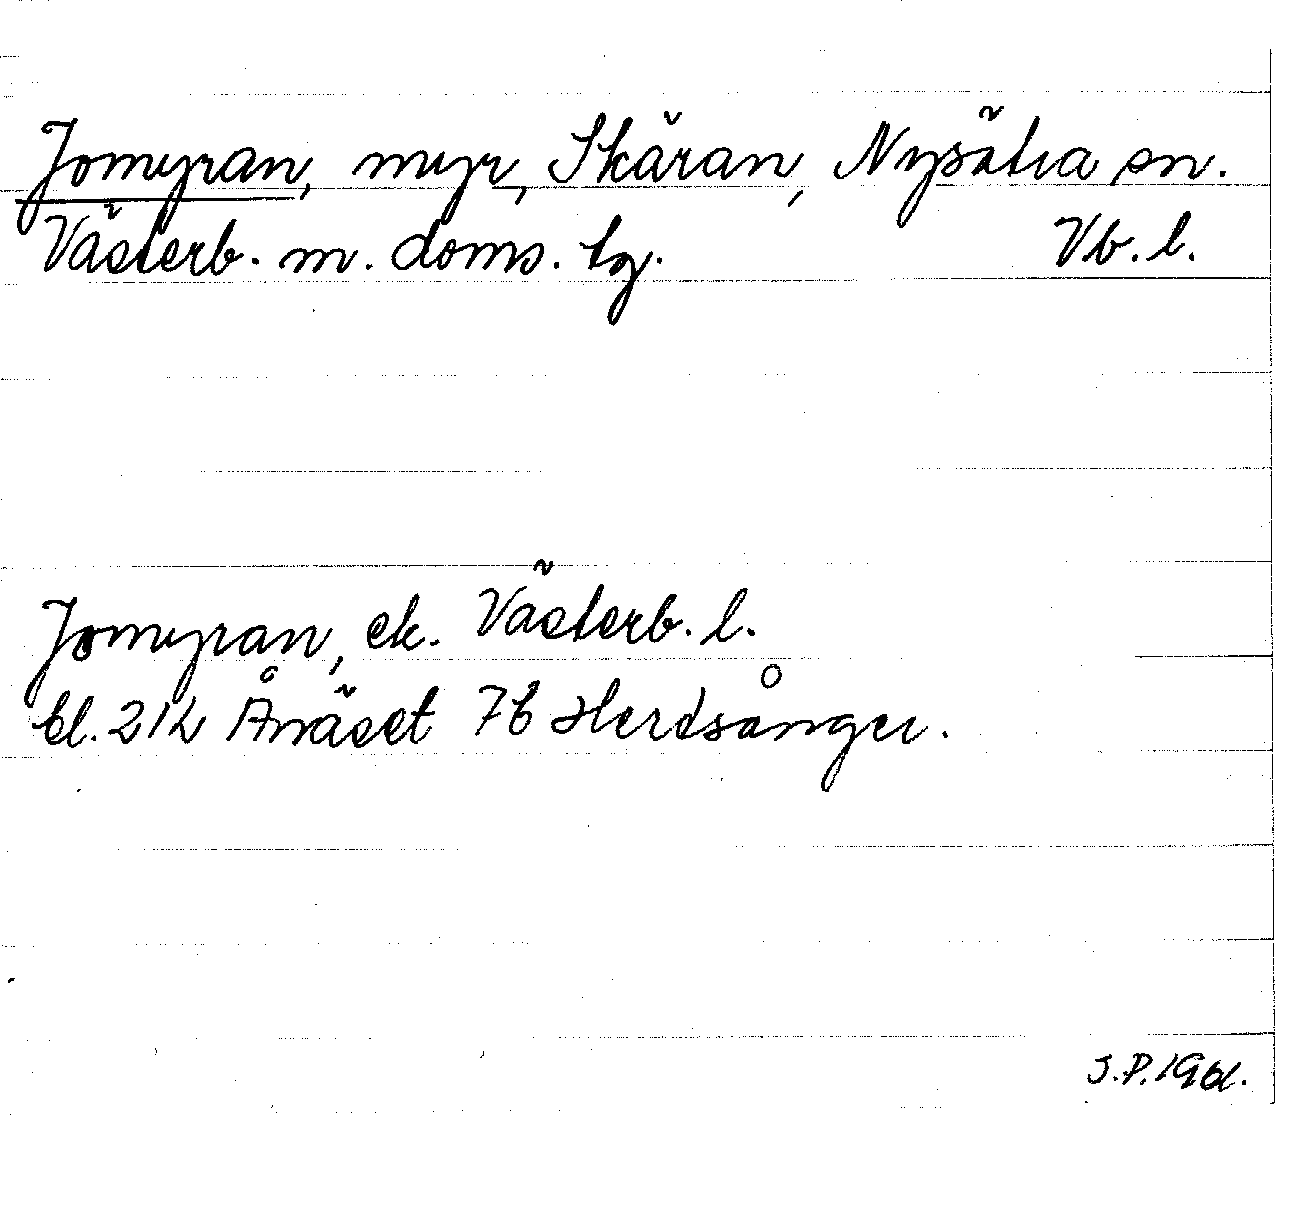 Jomyran, myr, Skäran, Nysätra sn.
Västerb. m. doms. tg. Vb. l.
Jomyran, ek. Västerb. l.
bl. 212 Ånäset 7b Herdsånger.
S.P. 1961.